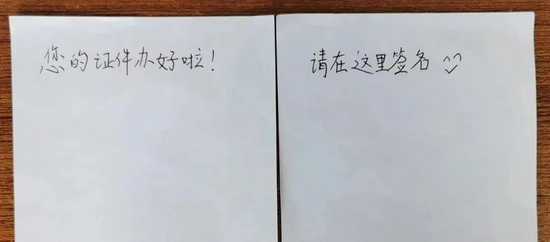 您的证件办好啦！
请在这里签名 ^^